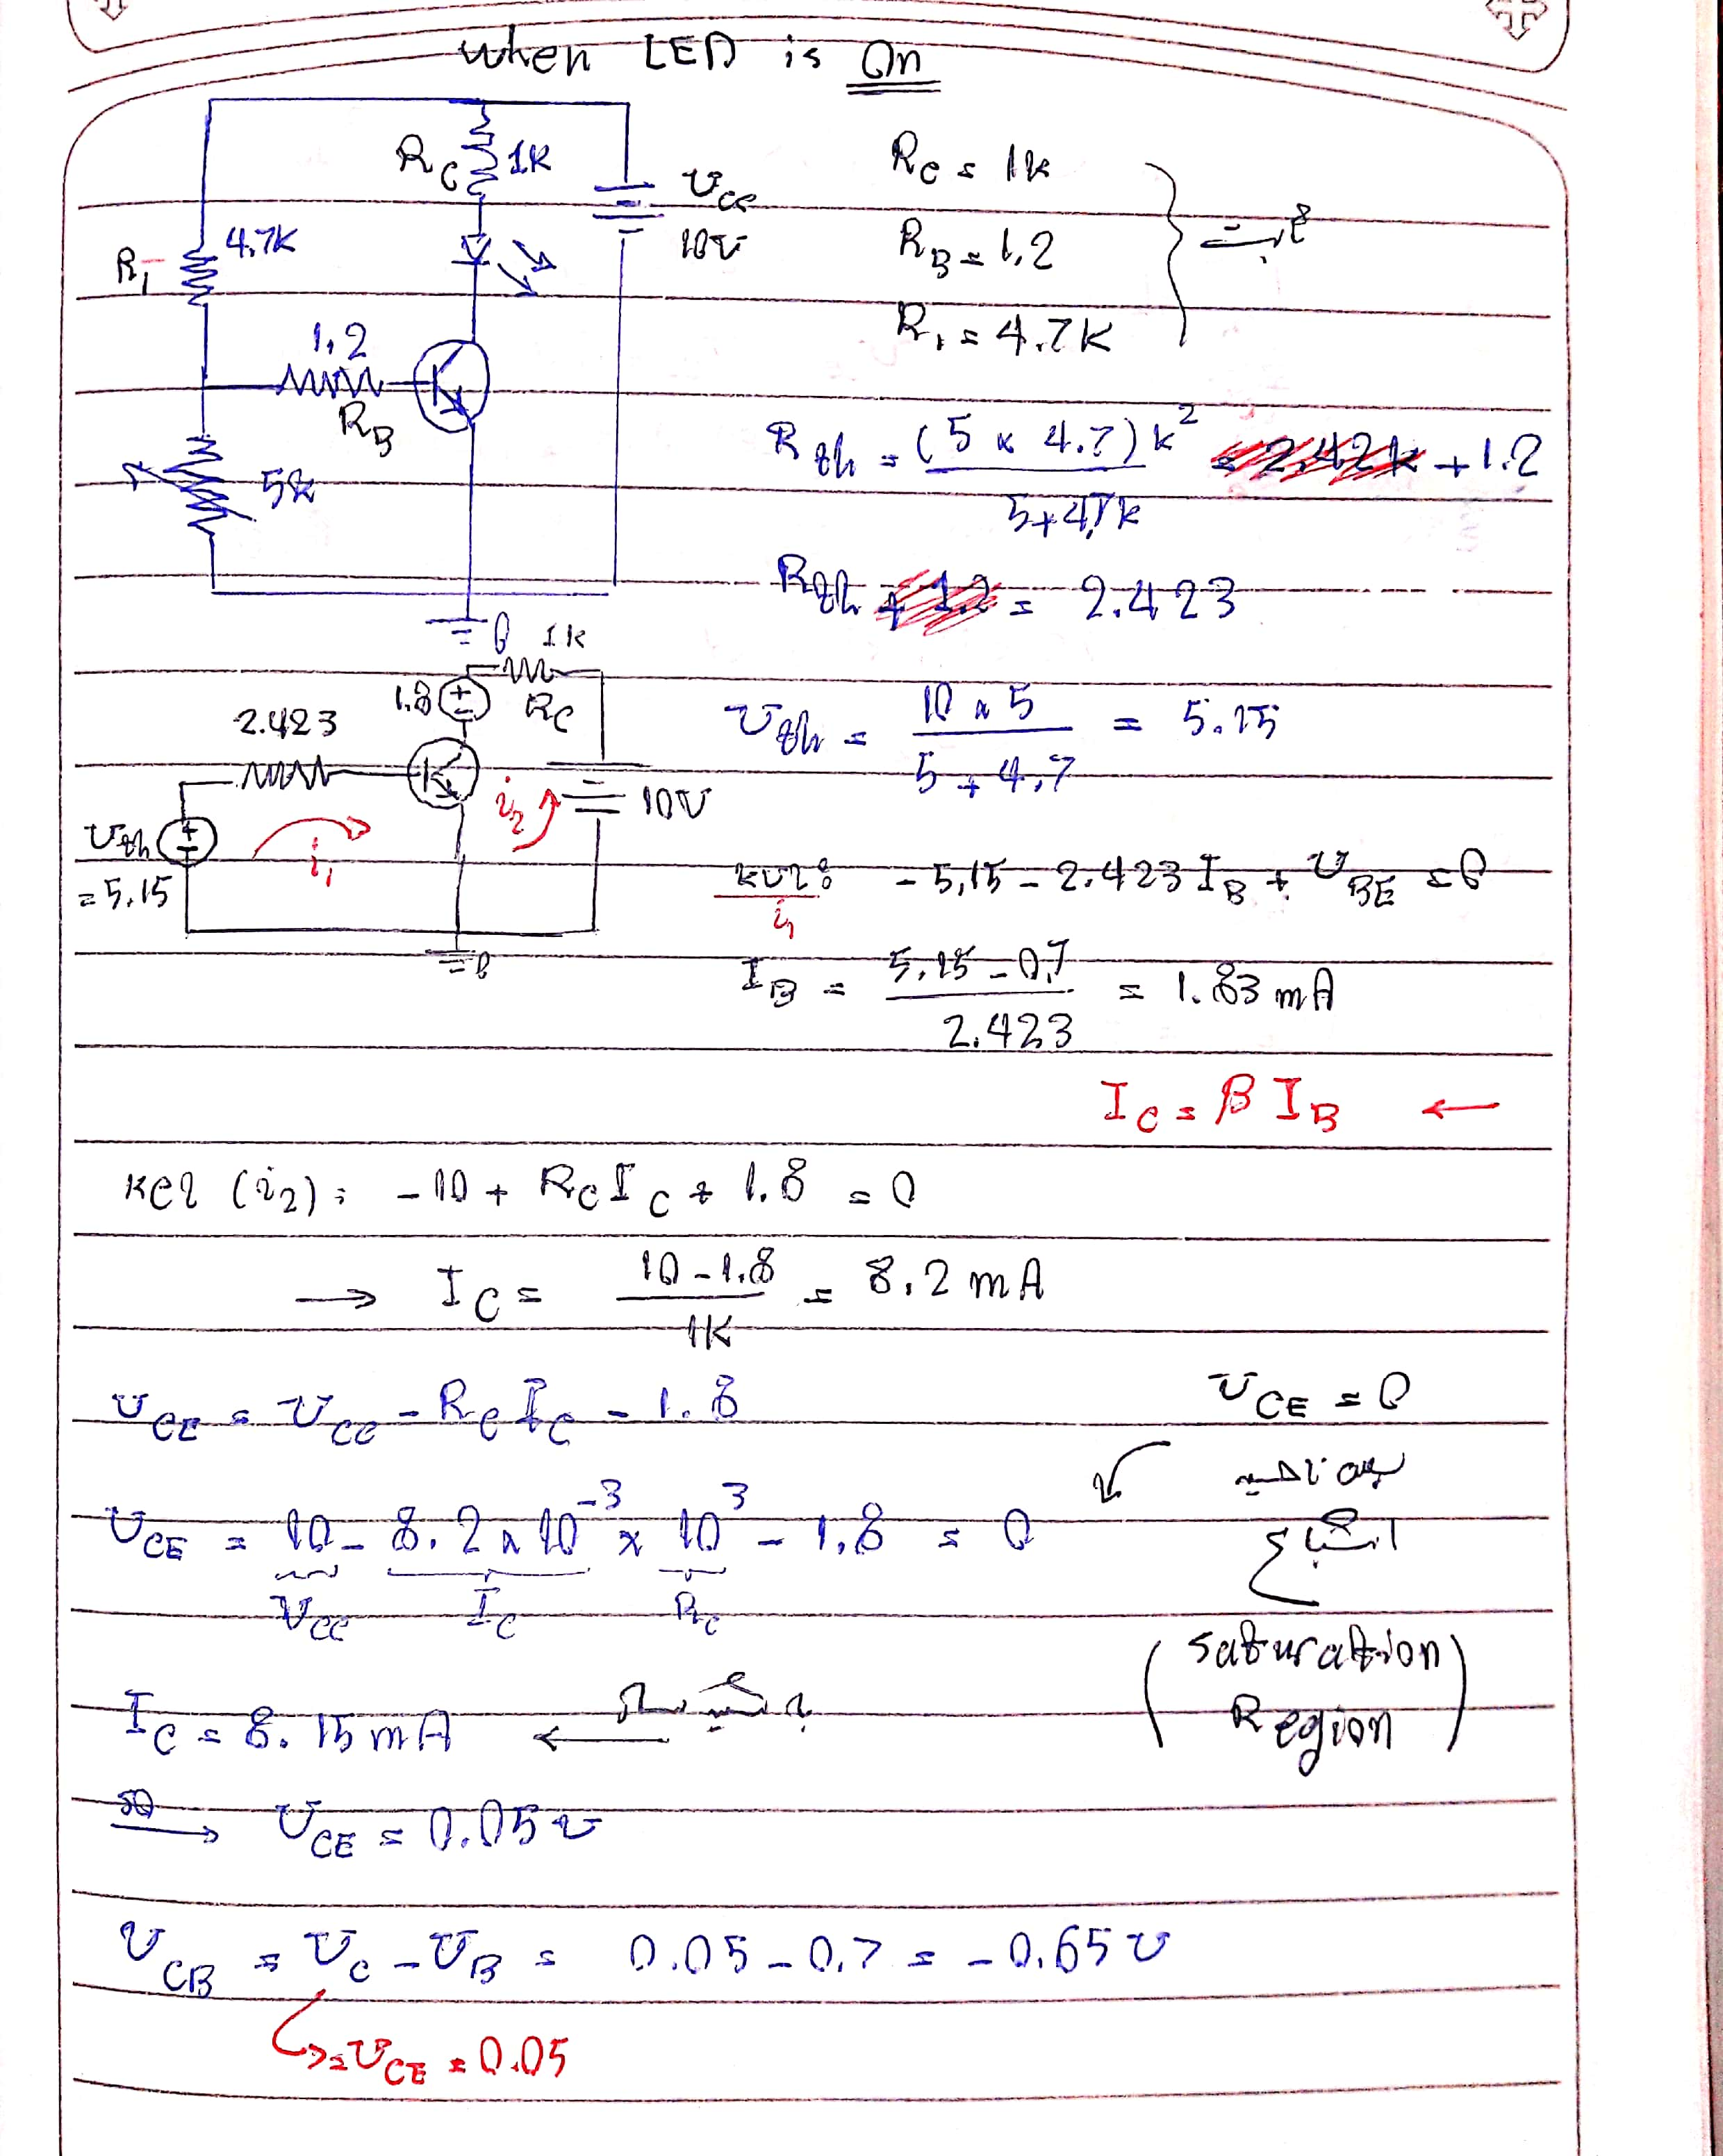 when LED is On
RC 1k
VCC
10V
R1 4.7K
1.2
RB
5k
RC = 1k
RB = 1.2
R1 = 4.7K
ثابت
Rth = (5 x 4.7)k² / 5+4.7k + 1.2
Rth = 2.423
0
1k
RC
1.8
2.423
10V
Vth
= 5.15
i1
i2
0
Vth = 10 x 5 / 5 + 4.7 = 5.15
KVL: i1 - 5.15 - 2.423 IB + VBE = 0
IB = 5.15 - 0.7 / 2.423 = 1.83 mA
IC = β IB ←
KCL (i2): - 10 + RC IC + 1.8 = 0
→ IC = 10 - 1.8 / 1K = 8.2 mA
VCE = VCC - RC IC - 1.8
VCE = 0
VCE = 10 - 8.2 x 10⁻³ x 10³ - 1.8 = 0
VCC IC RC
(Saturation Region)
IC = 8.15 mA ←
so → VCE = 0.05 v
VCB = VC - VB = 0.05 - 0.7 = - 0.65 v
→ = VCE = 0.05